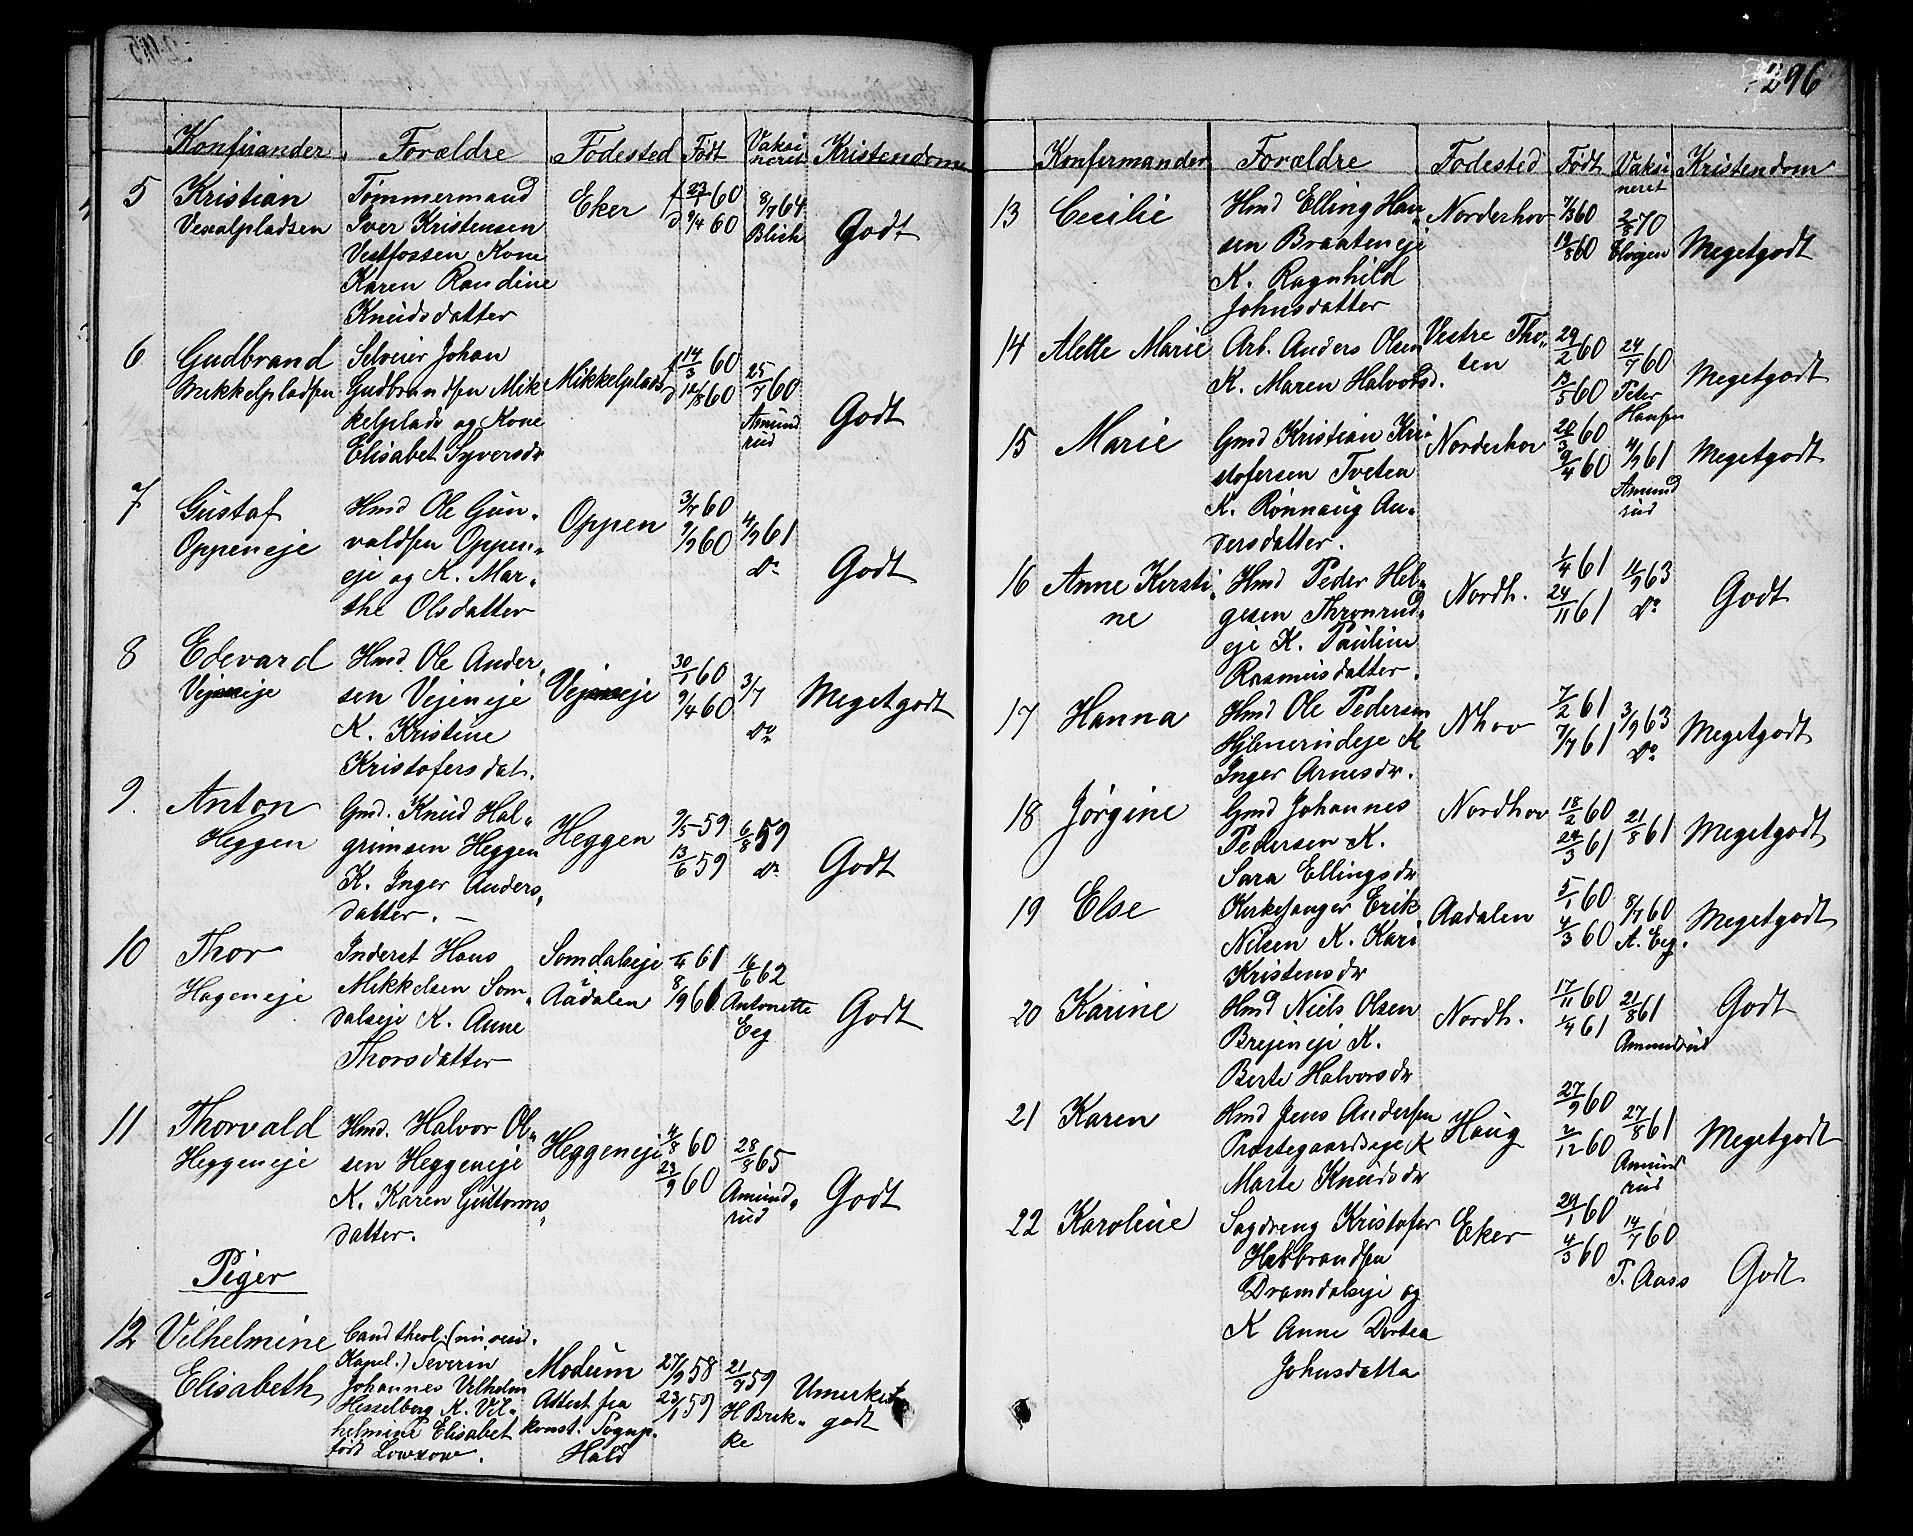 296
Konfirander. Forældre Fødested Født Vaksineret Kristendom
5 Kristian Vexalpladsen
Tømmermand
Iver Kristensen
Vestfossen Kone
Karen Randine
Knudsdatter
Eker
f 23/1 60
d 9/4 60
8/7 64
Blich
Godt
6 Gudbrand
Mikkelpladsen
Selveier Johan
Gudbrandsen Mik
kelplads og Kone
Elisabet Syversdr
Mikkelplads
f 14/3 60
d 12/8 60
25/7 60
Amund
rud
Godt
7 Gustaf
Oppeneje
Hmd Ole Gun-
valdsen Oppen-
eje og K. Mar-
the Olsdatter
Oppen
3/7 60
9/9 60
4/9 61
Do
Godt
8 Edevard
Vejeneje
Hmd. Ole Ander-
sen Vejeneje
K. Kristine
Kristofersdat.
Vejeneje
30/1 60
9/4 60
3/7
Do
Megetgodt
9. Anton
Heggen
Gmd. Knud Hal-
grimsen Heggen
K. Inger Anders-
datter. -
Heggen
9/5 - 59
13/6 59
6/8 59
Do
Godt
10 Thor
Hageneje
Inderst Hans
Mikkelsen Som-
dalseje K. Anne
Thorsdatter
Somdalseje
Aadalen
1/4 61
8/9 61
16/6 62
Antonette
Eeg
Godt
11 Thorvald
Heggeneje
Hmd. Halvor Ol-
sen Heggeneje
K. Karen Guttorms-
datter.
Heggeneje
4/8 60
23/9 60
28/8 65
Amund-
rud
Godt
Piger
12 Vilhelmine
Elisabeth
Cand theol. (nu resid.
Kapel.) Severin
Johannes Vilhelm
Hesselberg K. Vil-
helmine Elisabet
født Lowzow.
Modum
Attest fra
konst. Sogup.
Hald
27/9 58
23/1 59
21/7 59
H Brek-
ke
Umerket
godt
Konfermander Forældre Fødested Født Vaksineret Kristendom
13 Cecilie
Hmd Elling Han-
sen Braateneje
K. Ragnhild
Johnsdatter
Norderhov
7/3 60
19/8 60
2/8 70
Elvigen
Megetgodt
14 Alette Marie
Arb. Anders Olsen
K. Maren Halvorsd.
Vestre Tho-
sen
29/2 60
13/5 60
24/7 60
Peter
Hansen
Megetgodt
15 Marie
Gmd Kristian Kri-
stofersen Tveten
K. Rønnaug An-
dersdatter.
Norderhov
20/3 60
9/4 60
4/9 61
Amund
rud
Megetgodt
16 Anne Kersti-
ne
Hmd Peder Hel-
gesen Thronrud-
eje K. Pauline
Rasmusdatter.
Nordh.
1/4 61
24/11 61
11/9 63
Do
Godt
17 Hanna
Hmd Ole Pedersen
Hjlmerudeje K
Inger Arnesdr.
Nhov
7/2 61
7/7 61
3/9 63
Do
Megetgodt
18 Jørgine
Gmd Johannes
Pedersen K.
Sara Ellingsdr
Nordhov
18/2 60
24/3 61
21/8 61
Megetgodt
19 Else
Kirkesanger Erik
Nilsen K. Kari
Kristensdr
Aadalen
5/1 60
4/3 60
8/7 60
A. Eeg.
Megetgodt
20 Karine
Hmd Niels Olsen
Brejeneje K.
Berte Halvorsdr
Nordh.
17/11 60
1/4 61
21/8 61
Amundrud
Godt
21 Karen
Hmd Jens Andersen
Præstegaardseje K
Marte Knudsdr
Haug
27/9 60
2/12 60
27/8 61
Amund
rud
Megetgodt
22 Karoline
Sagdreng Kristofer
Hebbrandsen
Dramdalseje og
K Anne Dortea
Johnsdatta
Eker
29/1 60
4/3 60
14/7 60
P. Aass
Godt